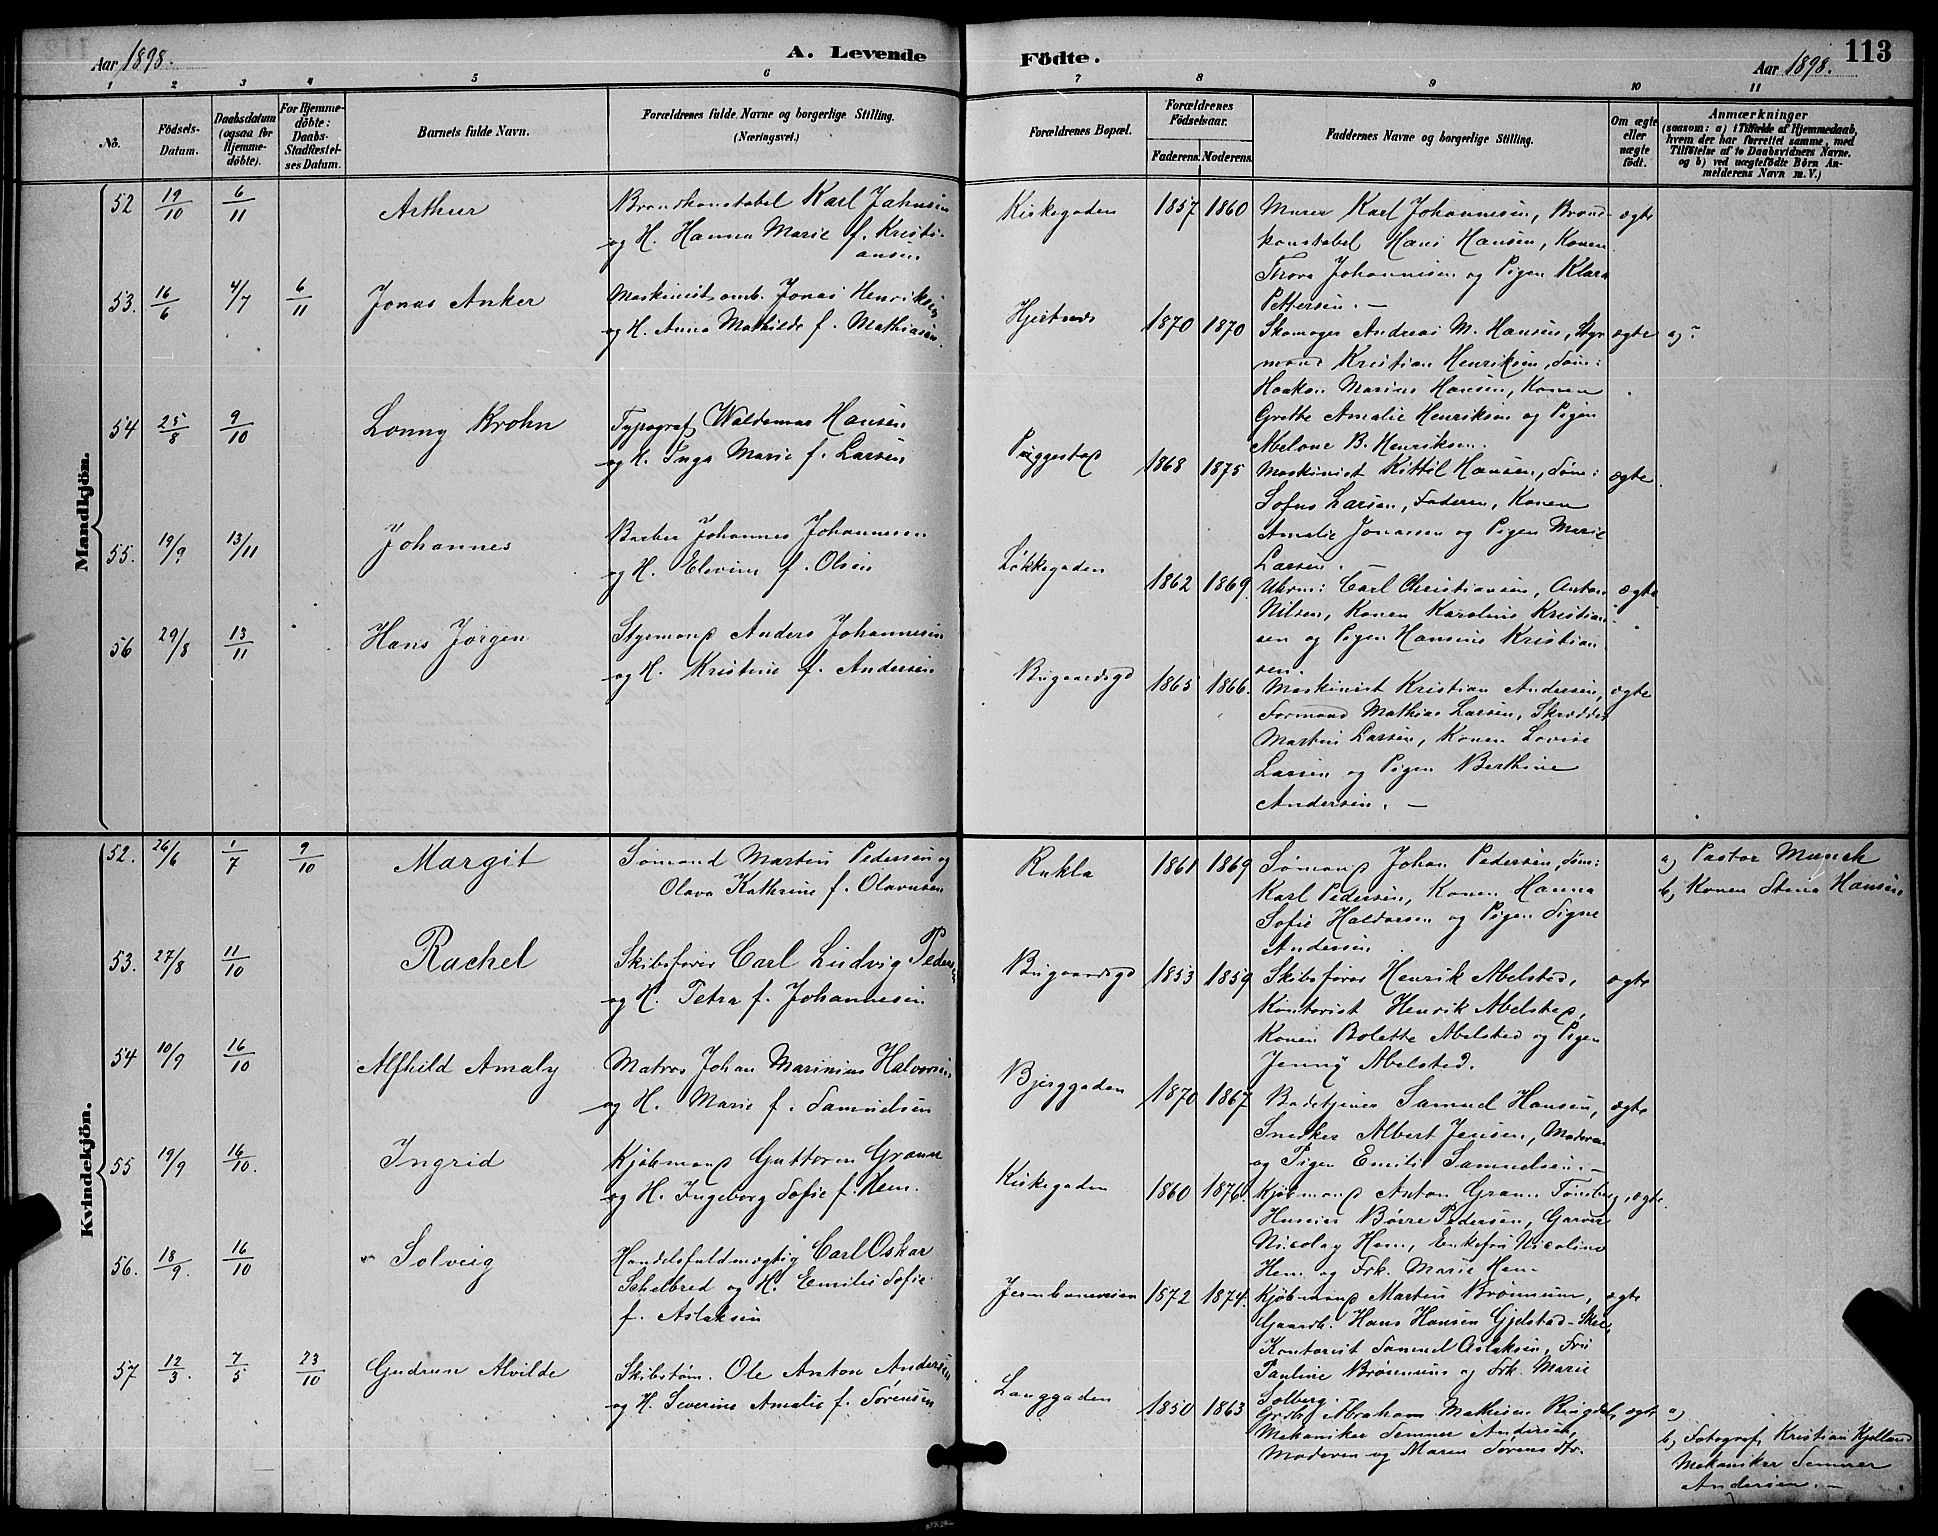 Aar 1898.
A. Levende
1 2 3 4 5 6
No.
Födsels-Datum.
Daabsdatum (ogsaa for Hjemme-döbte).
For Hjemme-döbte: Daabs-Stadfæstel-ses Datum.
Barnets fulde Navn.
Forældrenes fulde Navne og borgerlige Stilling.
(Næringsvei.)
Mandkjön.
52 19/10 6/11 Arthur Brandkonstabel Karl Jahnsen
og H. Hanna Marie f. Kristi-
ansen
53. 16/6 4/7 6/11 Jonas Anker Maskinist omb. Jonas Henriksen
og H. Anna Mathilde f. Mathiasen.
54 25/8 9/10 Lonny Krohn Typograf Waldemar Hansen
og H. Inga Marie f. Larsen
55. 19/9 13/11 Johannes Barber Johannes Johannesen
og H. Elevine f. Olsen
56 29/8 13/11 Hans Jörgen Styrmand Anders Johannesen
og H. Kristine f. Andersen
Kvindekjön.
52. 26/6 1/7 9/10 Margit Sømand Martin Pedersen og
Olava Kathrine f. Olavesen
53. 27/8 11/10 Rachel Skibsfører Carl Ludvig Pedersen
og H. Petra f. Johannesen
54 10/9 16/10 Alfhild Amaly Matros Johan Marinius Halvorsen
og H. Marie f. Samuelsen
55 19/9 16/10. Ingrid Kjøbmand Guttorm Grann
og H. Ingeborg Sofie f. Hem.
56. 18/9. 16/10 Solveig Handelsfuldmægtig Carl Oskar
Schelbred og H. Emilie Sofie
f. Aslaksen
57 12/3. 7/5 23/10 Gudrun Alvilde Skibstøm. Ole Anton Andersen
og H. Severine Amalie f. Sørensen
Födte.
Aar 1898.
113
7 8 9 10 11
Forældrenes Bopæl.
Forældrenes Födselsaar.
Faderens. Moderens.
Faddernes Navne og borgerlige Stilling.
Om ægte eller uægte födt.
Anmærkninger
(saasom: a) i Tilfælde af Hjemmedaab,
hvem der har forrettet samme, med
Tilföielse af to Daabsvidners Navne.
og b) ved uægtefödte Börn An-
melderens Navn m. V.)
Kirkegaden 1857 1860 Murer Karl Johannesen, Brand- ægte
konstabel Hans Hansen, Konen
Thora Johannesen og Pigen Klara
Pettersen. —
Hjertnes 1870 1870 Skomager Andreas M. Hansen, Styr ægte a)
mand Kristian Henriksen, Søm:
Haakon Marius Hansen, Konen
Grethe Amalie Henriksen og Pigen
Abelone B. Henriksen.
1868 1875 Maskinist Kittil Hansen, Søm: ægte
Sofus Larsen, Faderen, Konen
Amalie Jonassen og Pigen Marie
Larsen. —
Løkkegaden 1862 1869. Uhrm: Carl Christiansen, Anton ægte
Nilsen, Konen Karoline Kristian
sen og Pigen Hansine Kristian
sen.
Bugaardsgd 1865 1866. Maskinist Kristian Andersen, ægte
Formand Mathias Larsen, Skrædder
Martin Larsen, Konen Lovise
Larsen og Pigen Berthine
Andersen. —
Rukla 1861 1869 Sømand Johan Pedersen, Søm: a) Pastor Munch
Karl Pedersen, Konen Hanna b) Konen Stena Hansen
Sofie Haldorsen og Pigen Signe
Andersen
Bugaardsgd 1853 1859 Skibsfører Henrik Abelsted, ægte
Kontorist Henrik Abelsted,
Konen Bolette Abelsted og Pigen
Jenny Abelsted.
Bjerggaden 1870 1867 Badetjener Samuel Hansen, ægte
Snedker Albert Jensen, Moderen
og Pigen Emilie Samuelsen. —
Kirkegaden 1860 1876. Kjøbmand Anton Grann Tønsberg, ægte.
Huseier Børre Pedersen, Garver
Nicolay Hem, Enkefru Nicoline
Hem og Frk. Marie Hem
Jernbaneveien 1872 1874. Kjøbmand Martin Brönnum, ægte
Gaardb. Hans Hansen Gjelstad-Skee,
Kontorist Samuel Aslaksen, Fru
Pauline Brönnum og Frk. Marie
Solberg.
Langgaden 1850 1863 Grdbr. Abraham Mathisen Ringdal, ægte a)
Mekaniker Semner Andersen, b) Fotograf Kristian Kjelland
Moderen og Maren Sørens dtr. Mekaniker Semner
Andersen. —